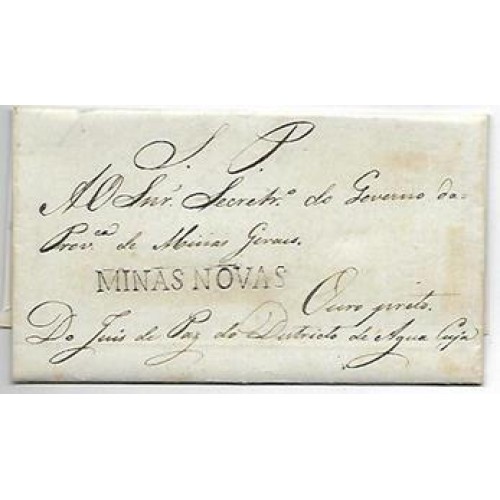 S. P.
AO Snr. Secretr.º do Governo da
Prov.ca de Minas Geraes.
MINAS NOVAS
Ouro preto.
Do Juis de Paz do Districto de Agua Cuja